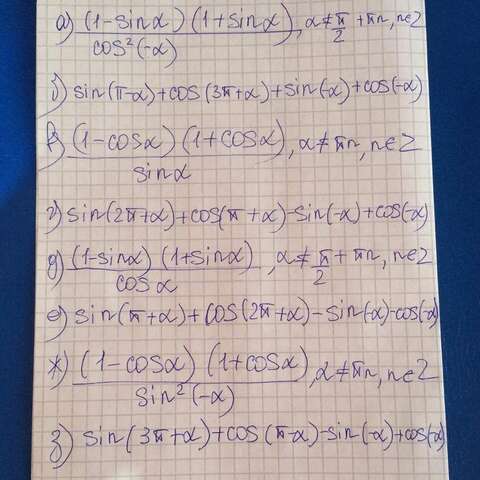 а) (1-sinα)(1+sinα)/cos²(-α), α≠π/2+πn, n∈Z
б) sin(π-α)+cos(3π+α)+sin(-α)+cos(-α)
в) (1-cosα)(1+cosα)/sinα, α≠πn, n∈Z
г) sin(2π+α)+cos(π+α)-sin(-α)+cos(-α)
д) (1-sinα)(1+sinα)/cosα, α≠π/2+πn, n∈Z
е) sin(π+α)+cos(2π+α)-sin(-α)-cos(-α)
ж) (1-cosα)(1+cosα)/sin²(-α), α≠πn, n∈Z
з) sin(3π+α)+cos(π-α)-sin(-α)+cos(-α)